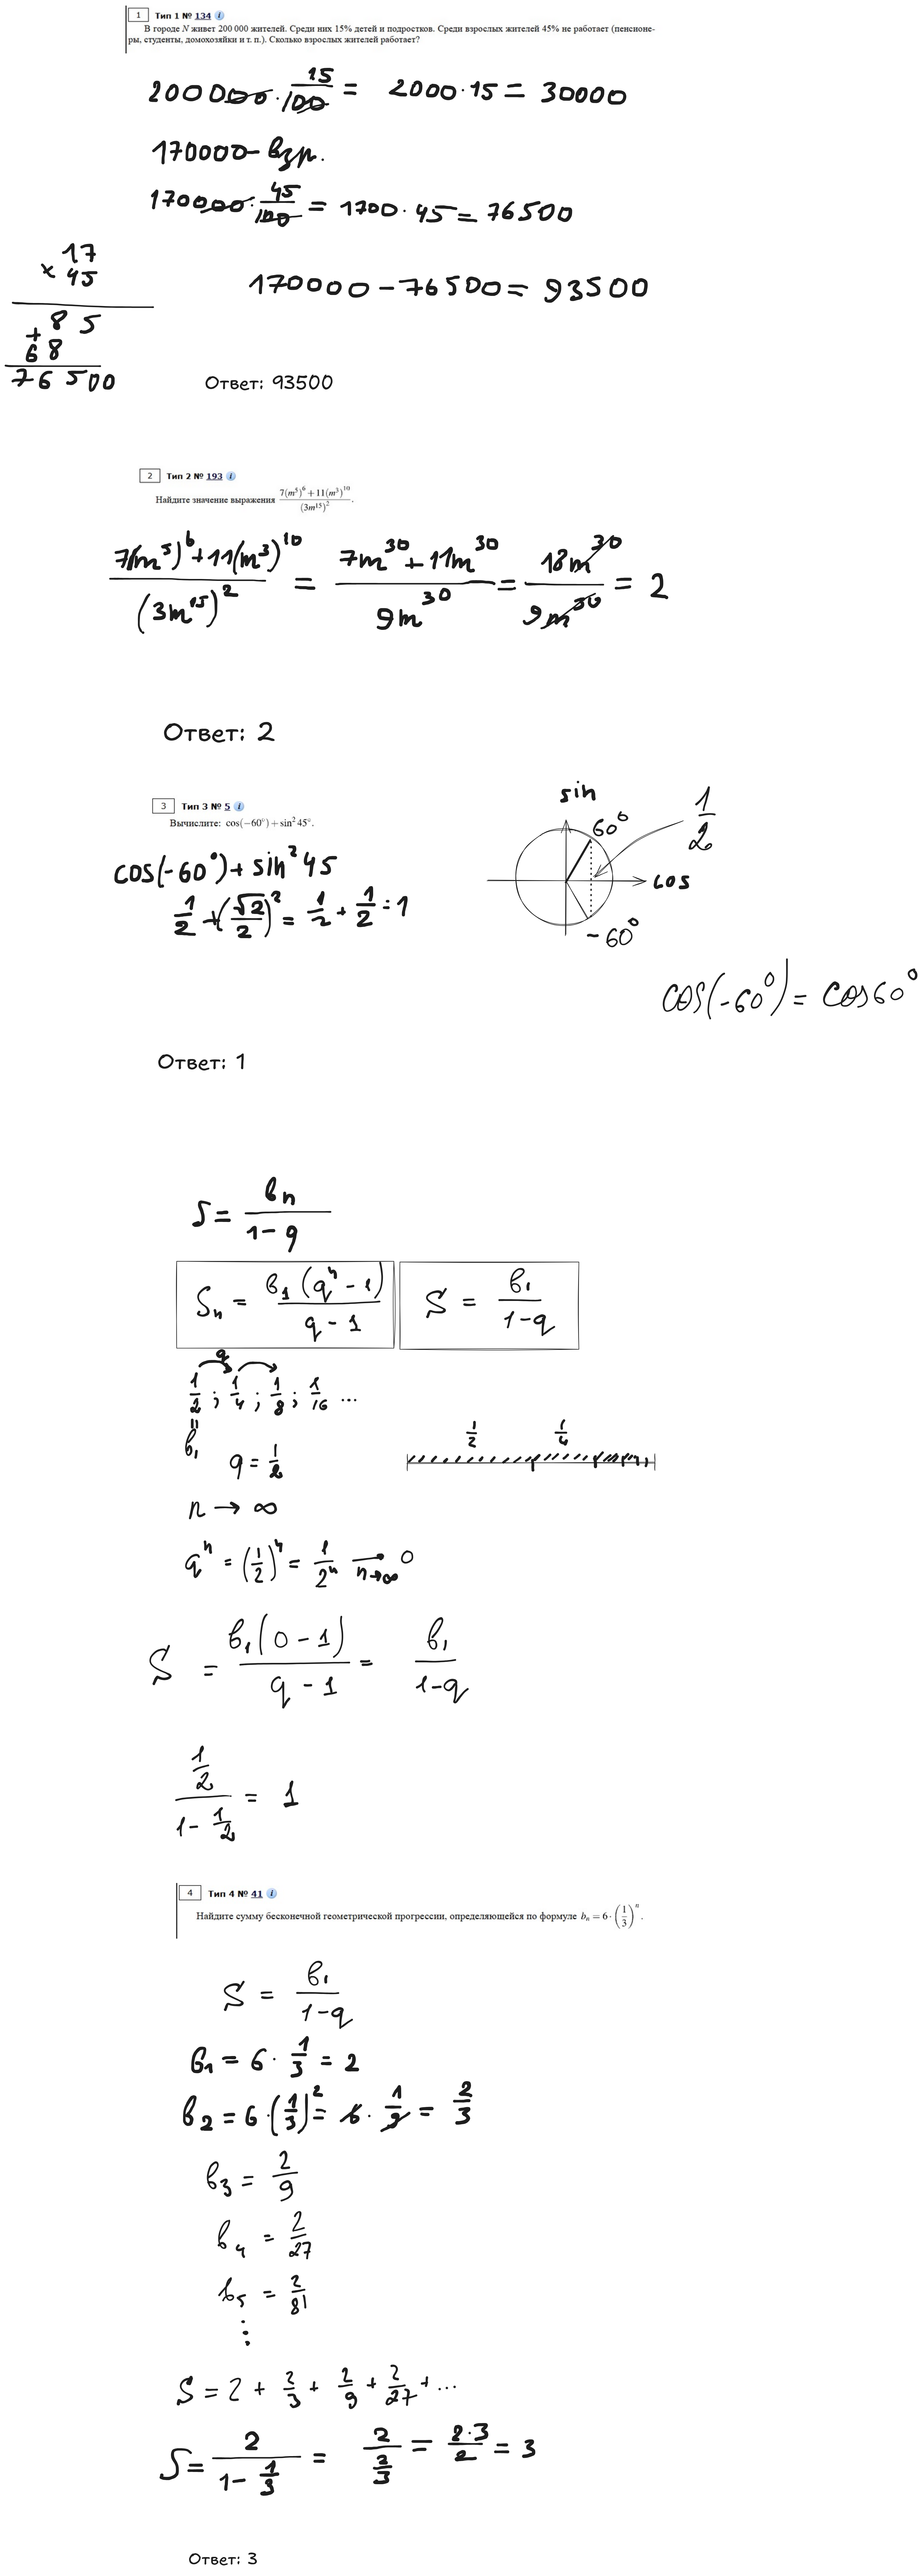 1 Тип 1 № 134 i
В городе N живет 200 000 жителей. Среди них 15% детей и подростков. Среди взрослых жителей 45% не работает (пенсионе-
ры, студенты, домохозяйки и т. п.). Сколько взрослых жителей работает?
200000 · 15/100 = 2000·15 = 30000
170000 - взр.
170000 · 45/100 = 1700 · 45 = 76500
17
× 45
+ 85
68
76500
170000 - 76500 = 93500
Ответ: 93500
2 Тип 2 № 193 i
Найдите значение выражения (7(m⁵)⁶ + 11(m³)¹⁰)/(3m¹⁵)².
(7(m⁵)⁶ + 11(m³)¹⁰)/(3m¹⁵)² = (7m³⁰ + 11m³⁰)/9m³⁰ = 18m³⁰/9m³⁰ = 2
Ответ: 2
3 Тип 3 № 5 i
Вычислите: cos(−60°) + sin² 45°.
cos(-60°) + sin² 45
1/2 + (√2/2)² = 1/2 + 1/2 = 1
sin
60°
1/2
cos
-60°
cos(-60°) = cos60°
Ответ: 1
S = bₙ/(1 - q)
Sₙ = b₁(qⁿ - 1)/(q - 1)
S = b₁/(1-q)
q
1/2 ; 1/4 ; 1/8 ; 1/16 ...
=
b₁
q = 1/2
1/2 1/4
n → ∞
qⁿ = (1/2)ⁿ = 1/2ⁿ → 0
n→∞
S = b₁(0 - 1)/(q - 1) = b₁/(1-q)
(1/2)/(1 - 1/2) = 1
4 Тип 4 № 41 i
Найдите сумму бесконечной геометрической прогрессии, определяющейся по формуле bₙ = 6 · (1/3)ⁿ.
S = b₁/(1-q)
b₁ = 6 · 1/3 = 2
b₂ = 6 · (1/3)² = 6 · 1/9 = 2/3
b₃ = 2/9
b₄ = 2/27
b₅ = 2/81
⋮
S = 2 + 2/3 + 2/9 + 2/27 + ...
S = 2/(1 - 1/3) = 2/(2/3) = 2·3/2 = 3
Ответ: 3